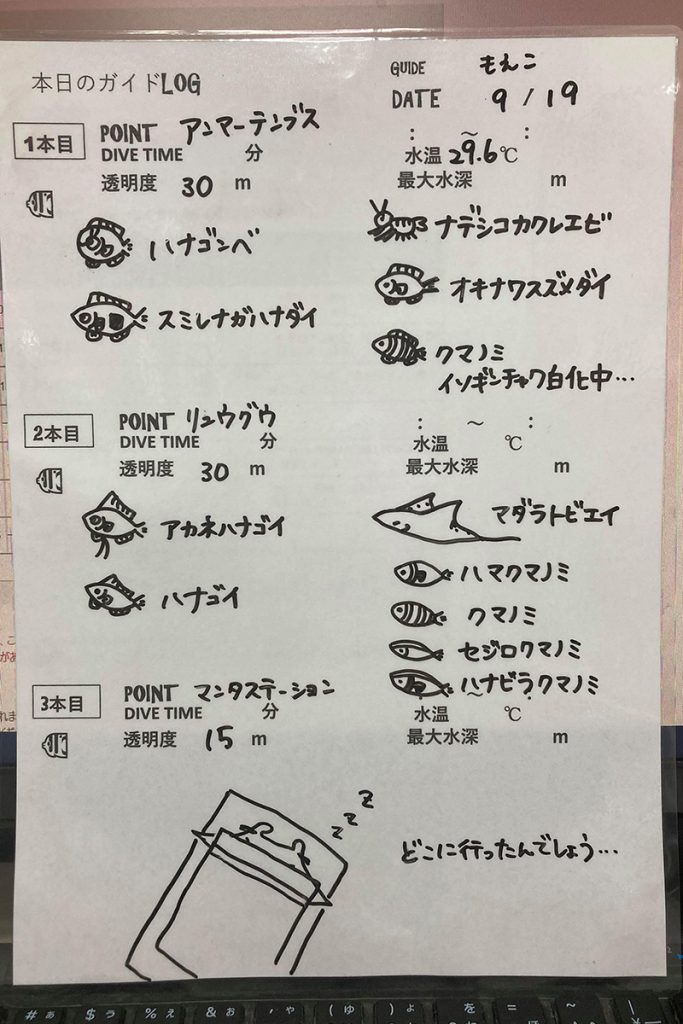 本日のガイドLOG
GUIDE もえこ
DATE 9 / 19
1本目
POINT アンマーテンブス
DIVE TIME 分
: ～ :
水温 29.6℃
透明度 30 m
最大水深 m
ハナゴンベ
スミレナガハナダイ
ナデシコカクレエビ
オキナワスズメダイ
クマノミ
イソギンチャク白化中…
2本目
POINT リュウグウ
DIVE TIME 分
: ～ :
水温 ℃
透明度 30 m
最大水深 m
アカネハナゴイ
ハナゴイ
マダラトビエイ
ハマクマノミ
クマノミ
セジロクマノミ
ハナビラクマノミ
3本目
POINT マンタステーション
DIVE TIME 分
水温 ℃
透明度 15 m
最大水深 m
z z z
どこに行ったんでしょう…
# ぁ $ ぅ % ぇ & ぉ ' ゃ ( ゅ ) ょ を = ~